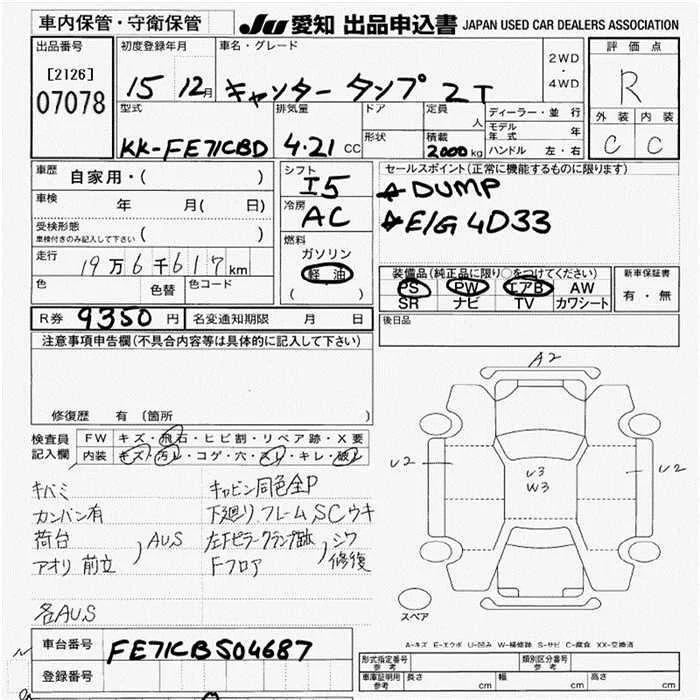 車内保管・守衛保管
JU 愛知 出品申込書 JAPAN USED CAR DEALERS ASSOCIATION
出品番号
[2126]
07078
初度登録年月
15 12月
車名・グレード
キャンター ダンプ 2T
2WD
・
4WD
評価点
R
外装 内装
C C
型式
KK-FE71CBD
排気量
4.21 CC
ドア
形状
定員
人
積載
2000 kg
ディーラー・並行
モデル年式 年
ハンドル 左・右
車歴
自家用・( )
車検
年 月( 日)
受検形態
車検付きのみ記入して下さい ( )
走行
19万6千617km
色 色替 色コード
シフト
I5
冷房
AC
燃料
ガソリン
軽油
( )
セールスポイント(正常に機能するものに限ります)
☆DUMP
☆E/G 4D33
装備品(純正品に限り○をつけてください)
PS PW エアB AW
SR ナビ TV カワシート
新車保証書
有・無
R券 9350円 名変通知期限 月 日
後日品
注意事項申告欄(不具合内容等は具体的に記入して下さい)
修復歴 有 (箇所 )
検査員記入欄
FW キズ・飛石・ヒビ割・リペア跡・X要
内装 キズ・汚レ・コゲ・穴・スレ・キレ・破レ
キバミ
カンバン有
荷台
アオリ 前立 ) AUS
各AUS
キャビン同色全P
下廻り.フレームSCウキ
Fフロア
修復
A2
U2
U3
W3
U2
スペア
A-キズ E-エクボ U-凹み W-補修跡 S-サビ C-腐食 XX-交換済
車台番号 FE71CB504687
登録番号
形式指定番号 参考
類別区分番号 参考
車庫証明用 参考
長さ cm 幅 cm 高さ cm